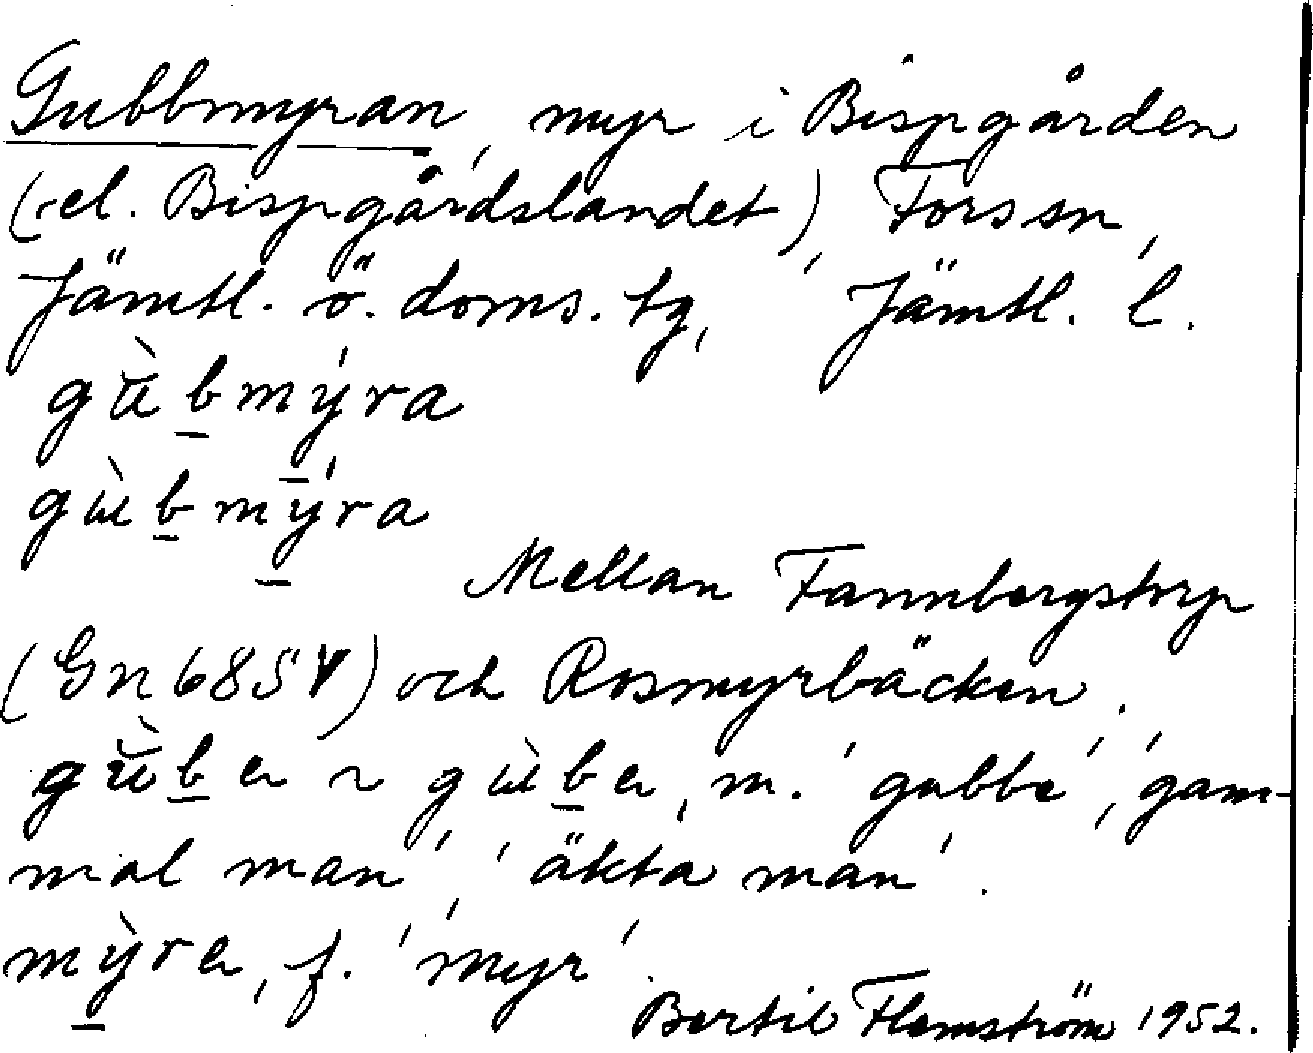 Gubbmyran, myr i Bispgården
(el. Bispgårdslandet), Fors sn,
Jämtl. ö. doms. tg, Jämtl. l.
gù̆b̲mýra
gùb̲mý̲ra
Mellan Fannbergstorp
(Gn 68 SV) och Rosmyrbäcken.
gù̆b̲er ~ gùb̲er, m. 'gubbe', 'gam-
mal man', 'äkta man'.
mỳ̲ra, f. 'myr'.
Bertil Flemström 1952.